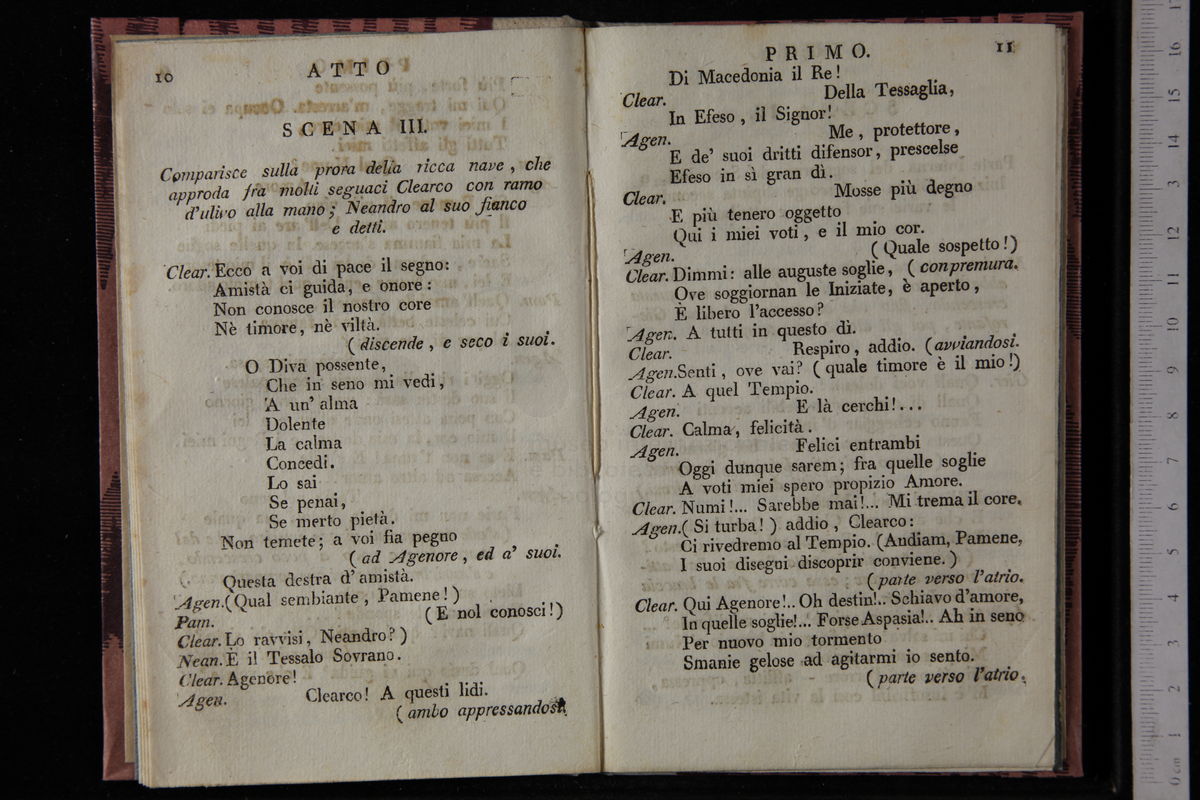 10
ATTO
SCENA III.
Comparisce sulla prora della ricca nave, che
approda fra molti seguaci Clearco con ramo
d'ulivo alla mano; Neandro al suo fianco
e detti.
Clear. Ecco a voi di pace il segno:
Amistà ci guida, e onore:
Non conosce il nostro core
Nè timore, nè viltà.
(discende, e seco i suoi.
O Diva possente,
Che in seno mi vedi,
A un' alma
Dolente
La calma
Concedi.
Lo sai
Se penai,
Se merto pietà.
Non temete; a voi fia pegno
(ad Agenore, ed a' suoi.
Questa destra d' amistà.
Agen. (Qual sembiante, Pamene!)
Pam. (E nol conosci!)
Clear. Lo ravvisi, Neandro?)
Nean. È il Tessalo Sovrano.
Clear. Agenore!
Agen. Clearco! A questi lidi.
(ambo appressandosi.
PRIMO.
11
Di Macedonia il Re!
Clear. Della Tessaglia,
In Efeso, il Signor!
Agen. Me, protettore,
E de' suoi dritti difensor, prescelse
Efeso in sì gran dì.
Clear. Mosse più degno
E più tenero oggetto
Qui i miei voti, e il mio cor.
Agen. (Quale sospetto!)
Clear. Dimmi: alle auguste soglie, (conpremura.
Ove soggiornan le Iniziate, è aperto,
È libero l'accesso?
Agen. A tutti in questo dì.
Clear. Respiro, addio. (avviandosi.
Agen. Senti, ove vai? (quale timore è il mio!)
Clear. A quel Tempio.
Agen. E là cerchi!...
Clear. Calma, felicità.
Agen. Felici entrambi
Oggi dunque sarem; fra quelle soglie
A voti miei spero propizio Amore.
Clear. Numi!... Sarebbe mai!... Mi trema il core.
Agen. (Si turba!) addio, Clearco:
Ci rivedremo al Tempio. (Andiam, Pamene,
I suoi disegni discoprir conviene.)
(parte verso l'atrio.
Clear. Qui Agenore!.. Oh destin!.. Schiavo d'amore,
In quelle soglie!... Forse Aspasia!.. Ah in seno
Per nuovo mio tormento
Smanie gelose ad agitarmi io sento.
(parte verso l'atrio.
0 cm 1 2 3 4 5 6 7 8 9 10 11 12 13 14 15 16 17